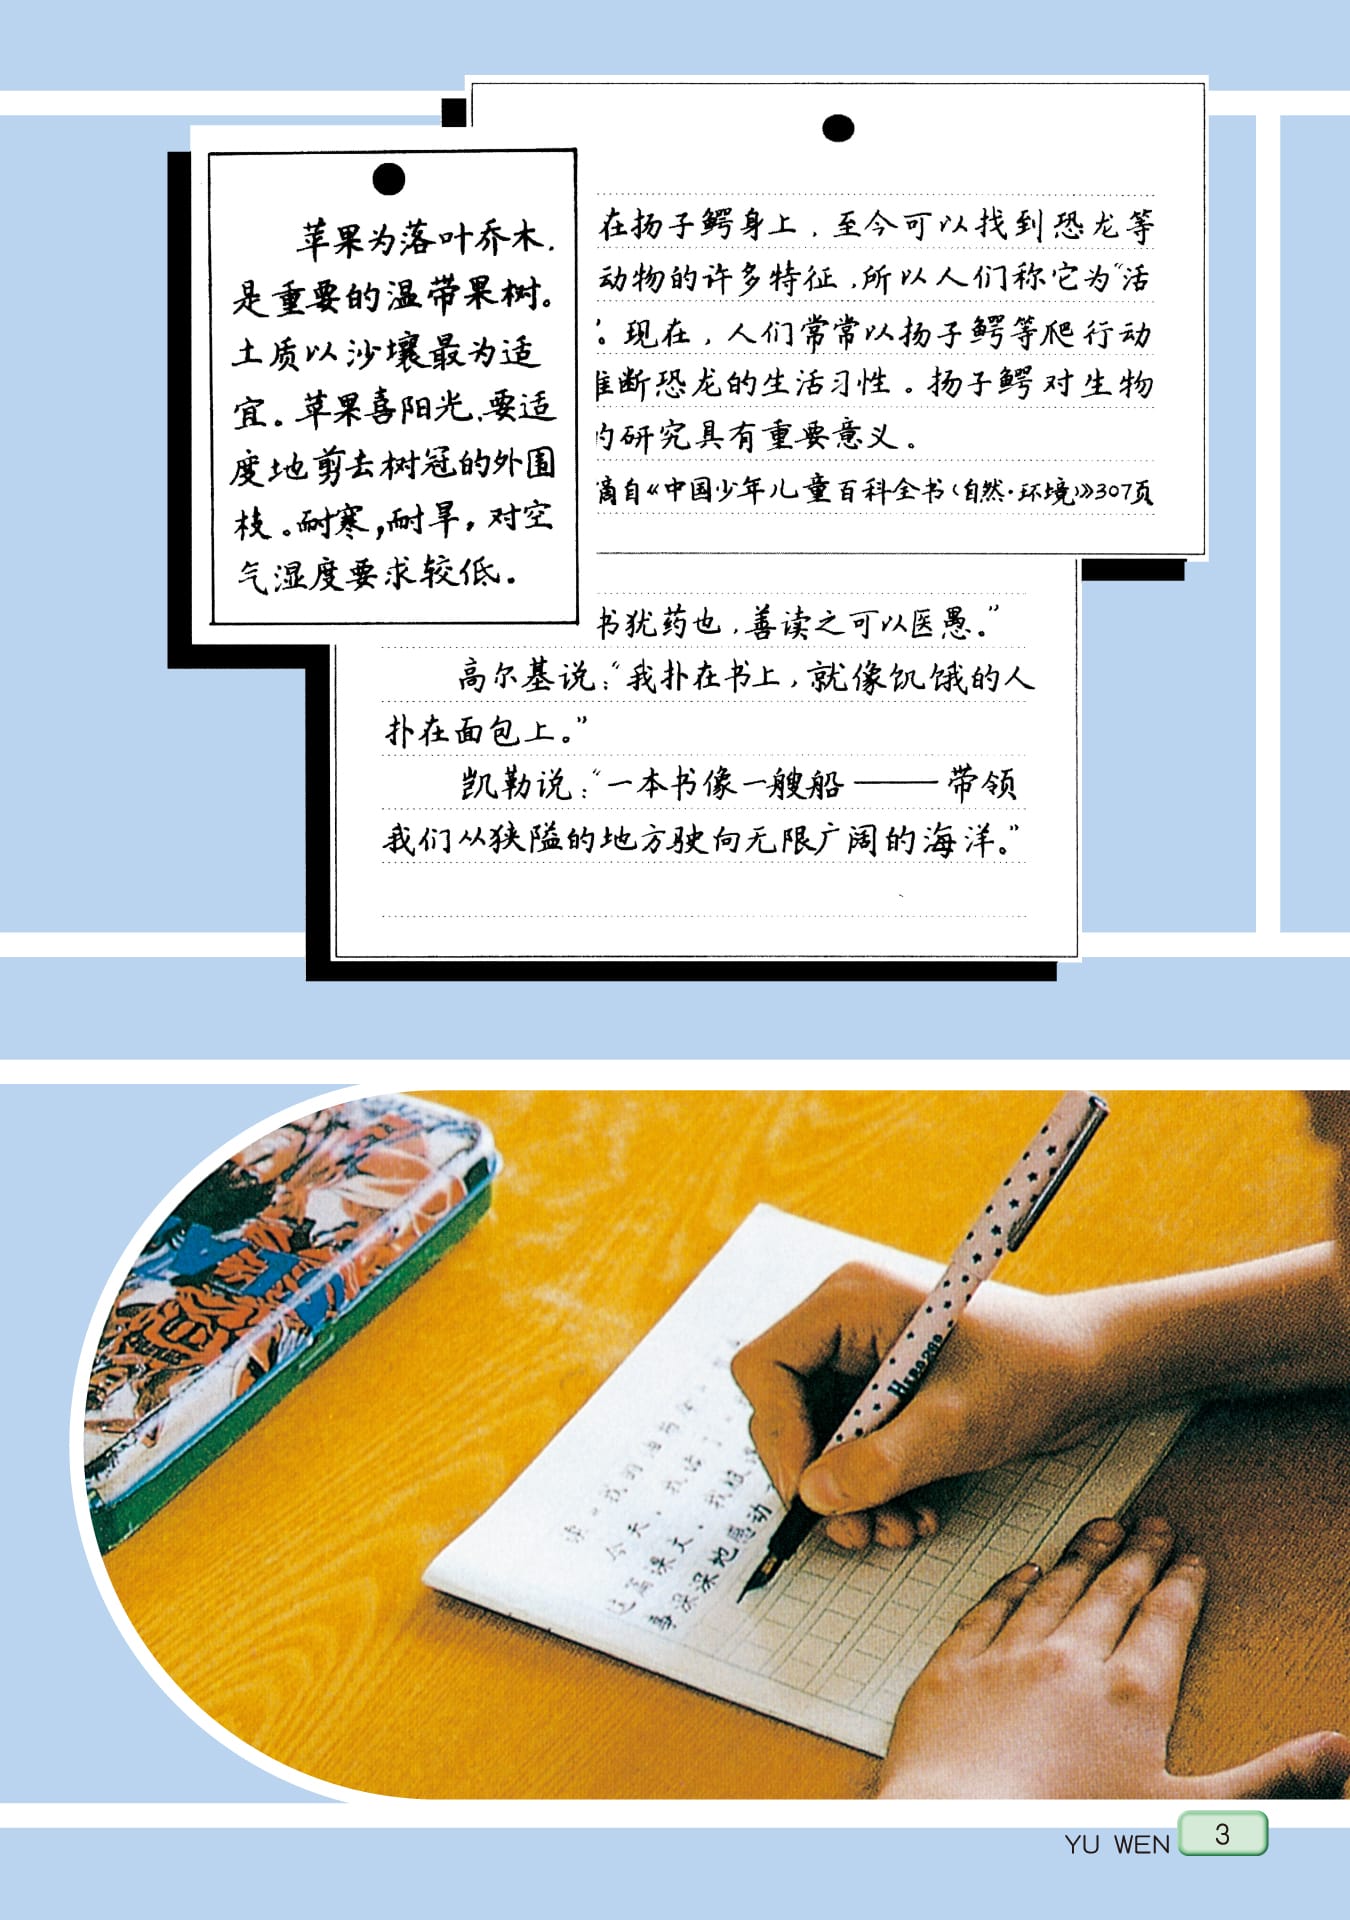 苹果为落叶乔木，
是重要的温带果树。
土质以沙壤最为适
宜。苹果喜阳光，要适
度地剪去树冠的外围
枝。耐寒，耐旱，对空
气湿度要求较低。
在扬子鳄身上，至今可以找到恐龙等
动物的许多特征，所以人们称它为“活
”。现在，人们常常以扬子鳄等爬行动
断恐龙的生活习性。扬子鳄对生物
的研究具有重要意义。
摘自《中国少年儿童百科全书（自然·环境）》307页
书犹药也，善读之可以医愚。”
高尔基说：“我扑在书上，就像饥饿的人
扑在面包上。”
凯勒说：“一本书像一艘船——带领
我们从狭隘的地方驶向无限广阔的海洋。”
今天、我
这篇课文、我被
深深地感动
YU WEN 3